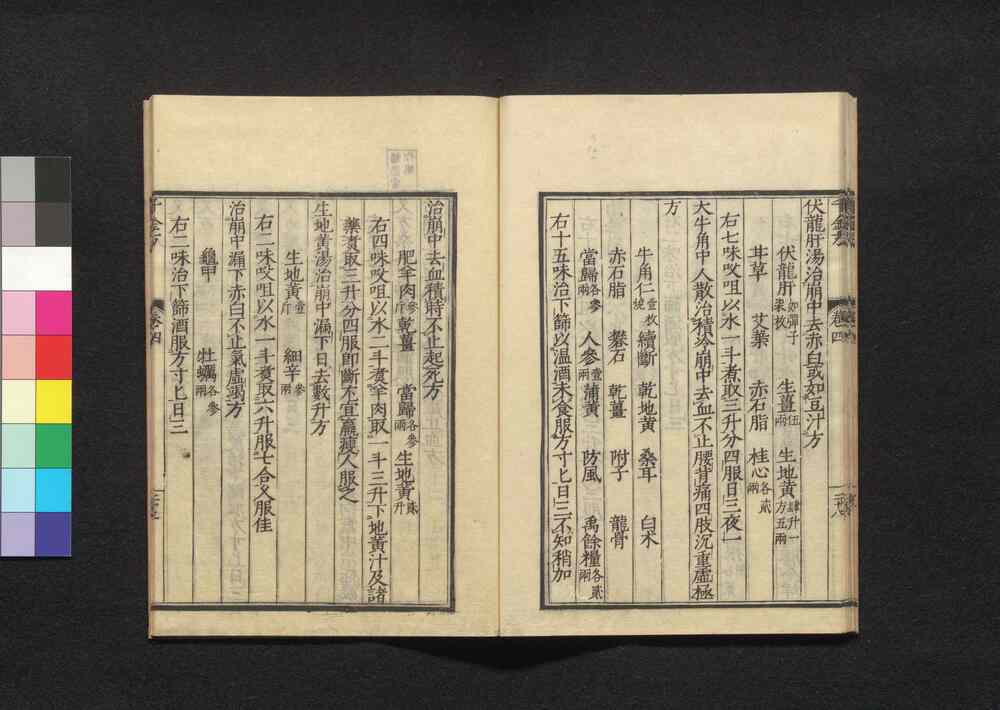 伏龍肝湯治崩中去赤白或如豆汁方
伏龍肝如彈子柒枚 生薑伍兩 生地黃肆升一方五兩
甘草 艾葉 赤石脂 桂心各貳兩
右七味㕮咀以水一斗煮取三升分四服日三夜一
大牛角中人散治積冷崩中去血不止腰背痛四肢沉重虛極
方
牛角仁壹枚燒 續斷 乾地黃 桑耳 白朮
赤石脂 礬石 乾薑 附子 龍骨
當歸各參兩 人參壹兩 蒲黃 防風 禹餘糧各貳兩
右十五味治下篩以溫酒未食服方寸匕日三不知稍加
治崩中去血積時不止起死方
肥羊肉參斤 乾薑 當歸各參兩 生地黃貳升
右四味㕮咀以水二斗煮羊肉取一斗三升下地黃汁及諸
藥煮取三升分四服即斷不宜羸瘦人服之
生地黃湯治崩中漏下日去數升方
生地黃壹斤 細辛參兩
右二味㕮咀以水一斗煮取六升服七合久服佳
治崩中漏下赤白不止氣虛竭方
龜甲 牡蠣各參兩
右二味治下篩酒服方寸匕日三
千金方
卷四